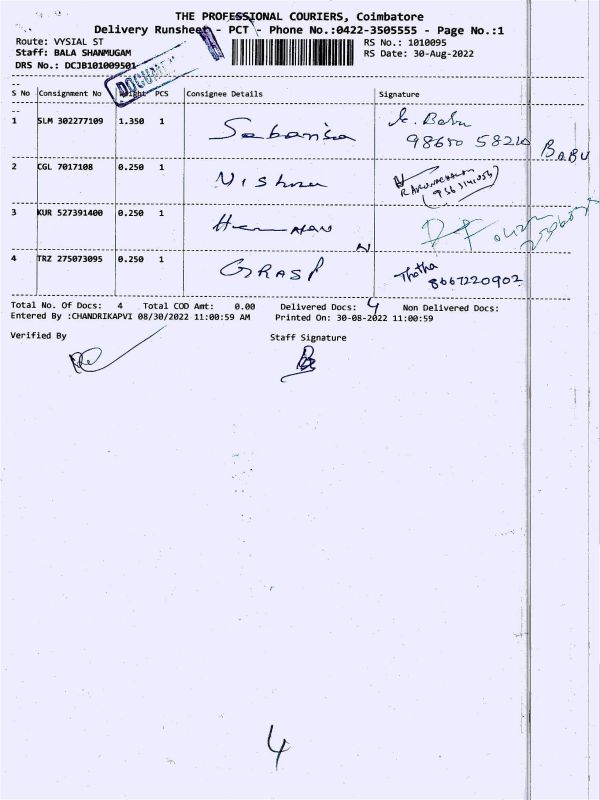 THE PROFESSIONAL COURIERS, Coimbatore
Delivery Runsheet - PCT - Phone No.:0422-3505555 - Page No.:1
Route: VYSIAL ST
RS No.: 1010095
Staff: BALA SHANMUGAM
RS Date: 30-Aug-2022
DRS No.: DCJB101009501
DOCUMENT
S No Consignment No Weight PCS Consignee Details Signature
1 SLM 302277109 1.350 1 Sabarisa K. Babu
98650 58210 BABU
2 CGL 7017108 0.250 1 Vishnu
3 KUR 527391400 0.250 1
4 TRZ 275073095 0.250 1 GRASP Thotha
8667220902
Total No. Of Docs: 4 Total COD Amt: 0.00 Delivered Docs: 4 Non Delivered Docs:
Entered By :CHANDRIKAPVI 08/30/2022 11:00:59 AM Printed On: 30-08-2022 11:00:59
Verified By Staff Signature
4